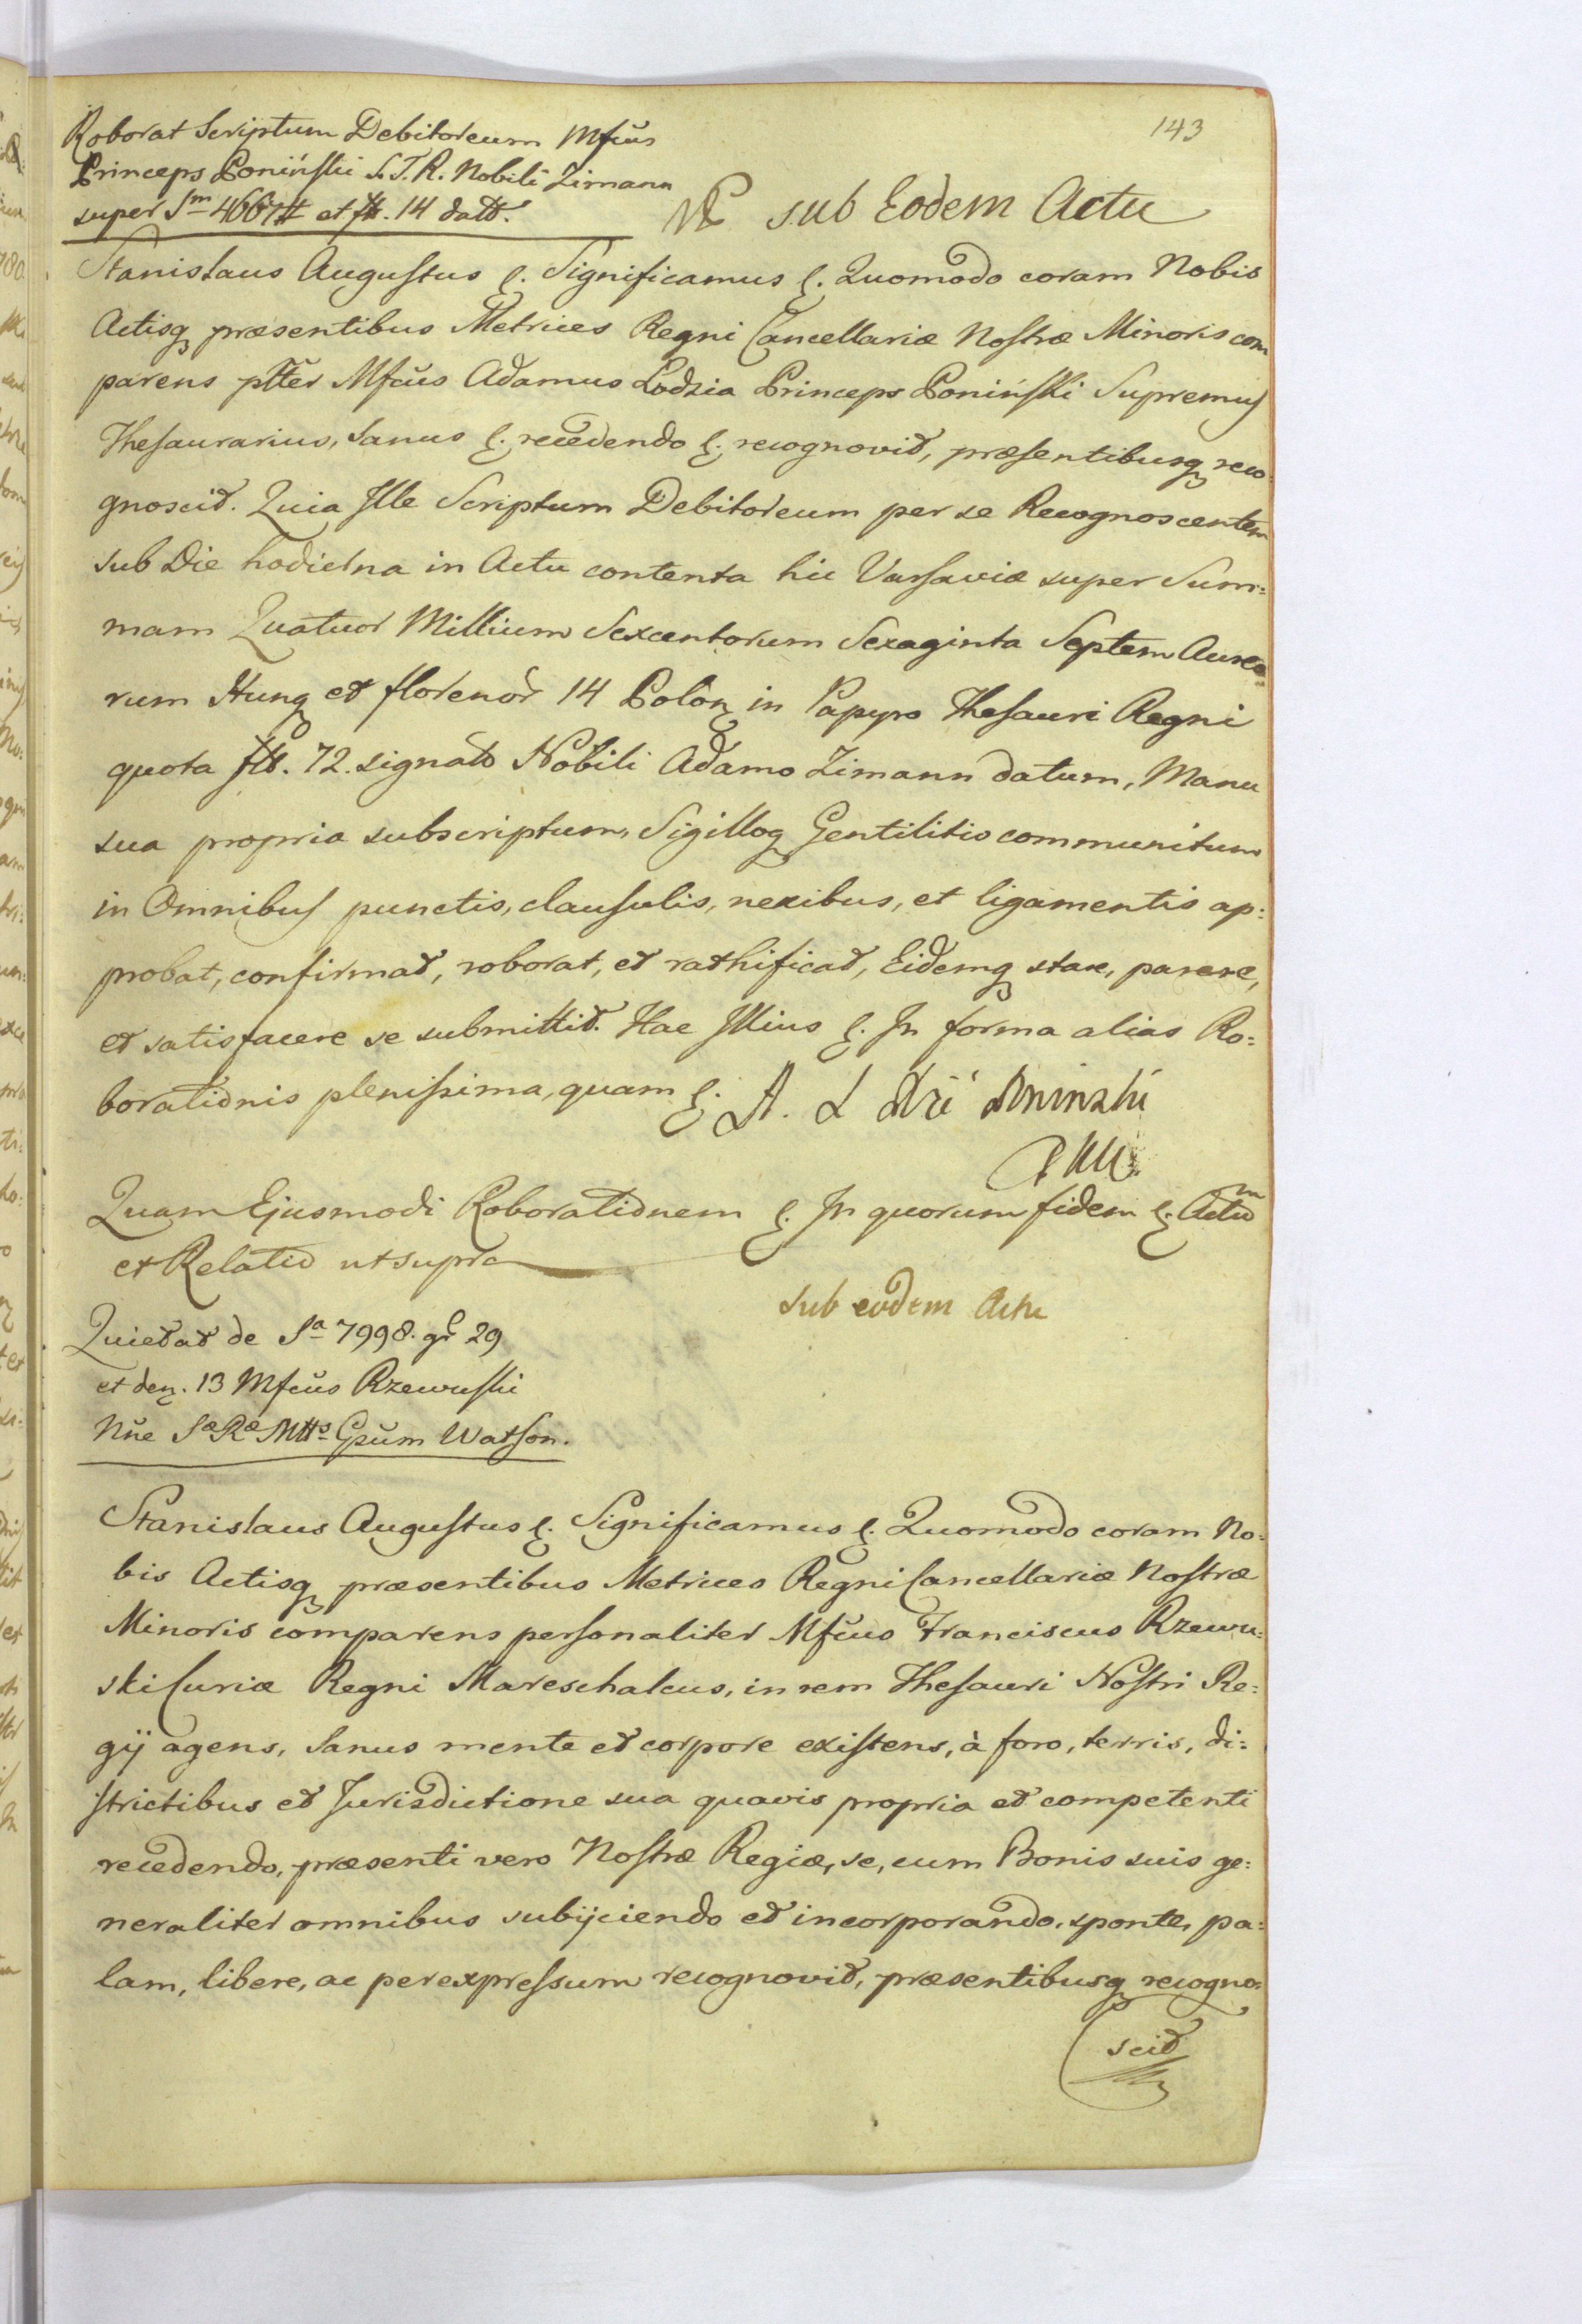 143
Roborat Scriptum Debitoreum Mfcus
Princeps Poniński S. T. R. Nobili Zimann
super Sm 4667 # et fl. 14 datt.
sub Eodem Actu
Stanislaus Augustus &. Significamus &. Quomodo coram Nobis
Actisq præsentibus Metrices Regni Cancellariæ Nostræ Minoris com
parens pltter Mfcus Adamus Lodzia Princeps Poniński Supremus
Thesaurarius, Sanus &. recedendo &. recognovit, præsentibusq reco
gnoscit. Quia Ille Scriptum Debitoreum per se Recognoscentem
sub Die hodierna in Actu contenta hic Varsaviæ super Sum:
mam Quatuor Millium Sexcentorum Sexaginta Septem Aureo
rum Hung et florenor 14 Polon in Papyro Thesauri Regni
quota fl. 72. signato Nobili Adamo Zimann datum, Manu
sua propria subscriptum, Sigilloq Gentilitio communitum
in Omnibus punctis, clausulis, nexibus, et ligamentis ap:
probat, confirmat, roborat, et rathificat, Eidemq stare, parere,
et satisfacere se submittit. Hac Illius &. In forma alias Ro:
borationis plenissima, quam &.
A. L
Quam Ejusmodi Roborationem &. In quorum fidem &. Actum
et Relatio ut supra
sub eodem Actu
Quietat de Sa 7998. gr 29
et den. 13 Mfcus Rzewuski
Nne Sæ Ræ Mtts Gsum Watson.
Stanislaus Augustus &. Significamus &. Quomodo coram No:
bis Actisq præsentibus Metrices Regni Cancellariæ Nostræ
Minoris comparens personaliter Mfcus Franciscus Rzewu:
ski Curiæ Regni Mareschalcus, in rem Thesauri Nostri Re:
gij agens, Sanus mente et corpore existens, à foro, terris, di:
strictibus et Jurisdictione sua quavis propria et competenti
recedendo, præsenti vero Nostræ Regiæ, se, cum Bonis suis ge:
neraliter omnibus subijciendo et incorporando, sponte, pa:
lam, libere, ac per expressum recognovit, præsentibusq recogno:
scit